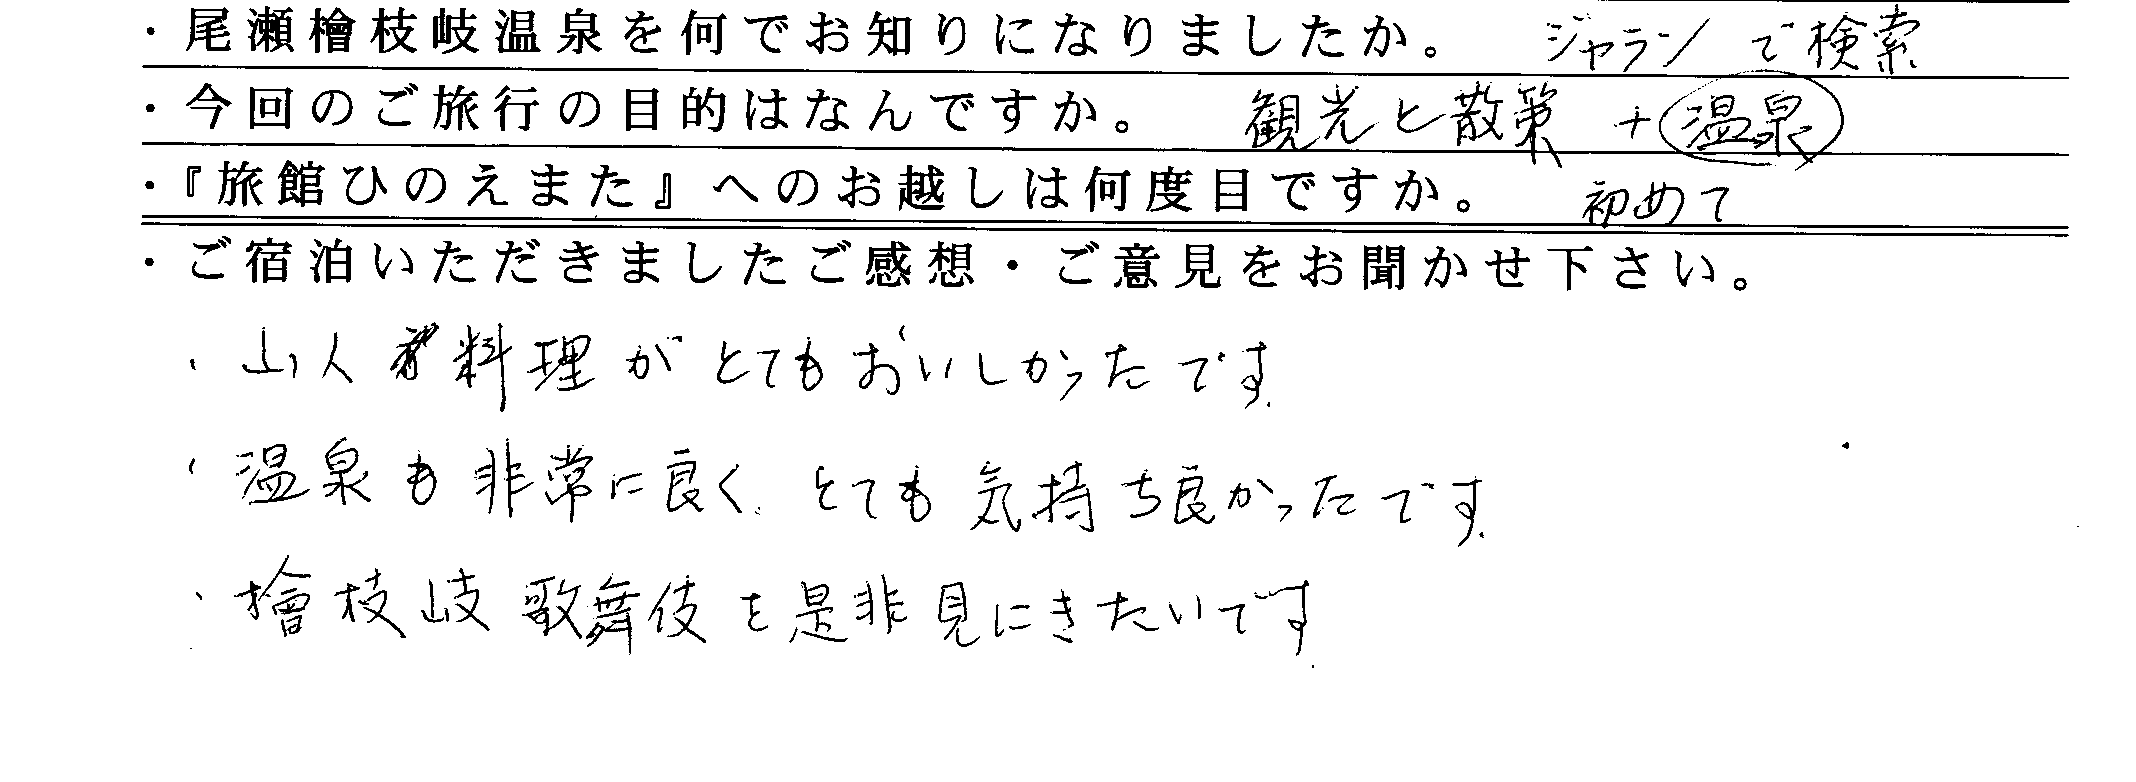 ・尾瀬檜枝岐温泉を何でお知りになりましたか。 ジャランで検索
・今回のご旅行の目的はなんですか。 観光と散策 + 温泉
・『旅館ひのえまた』へのお越しは何度目ですか。 初めて
・ご宿泊いただきましたご感想・ご意見をお聞かせ下さい。
・山人料理がとてもおいしかったです.
・温泉も非常に良く、とても気持ち良かったです.
・檜枝岐歌舞伎を是非見にきたいです.